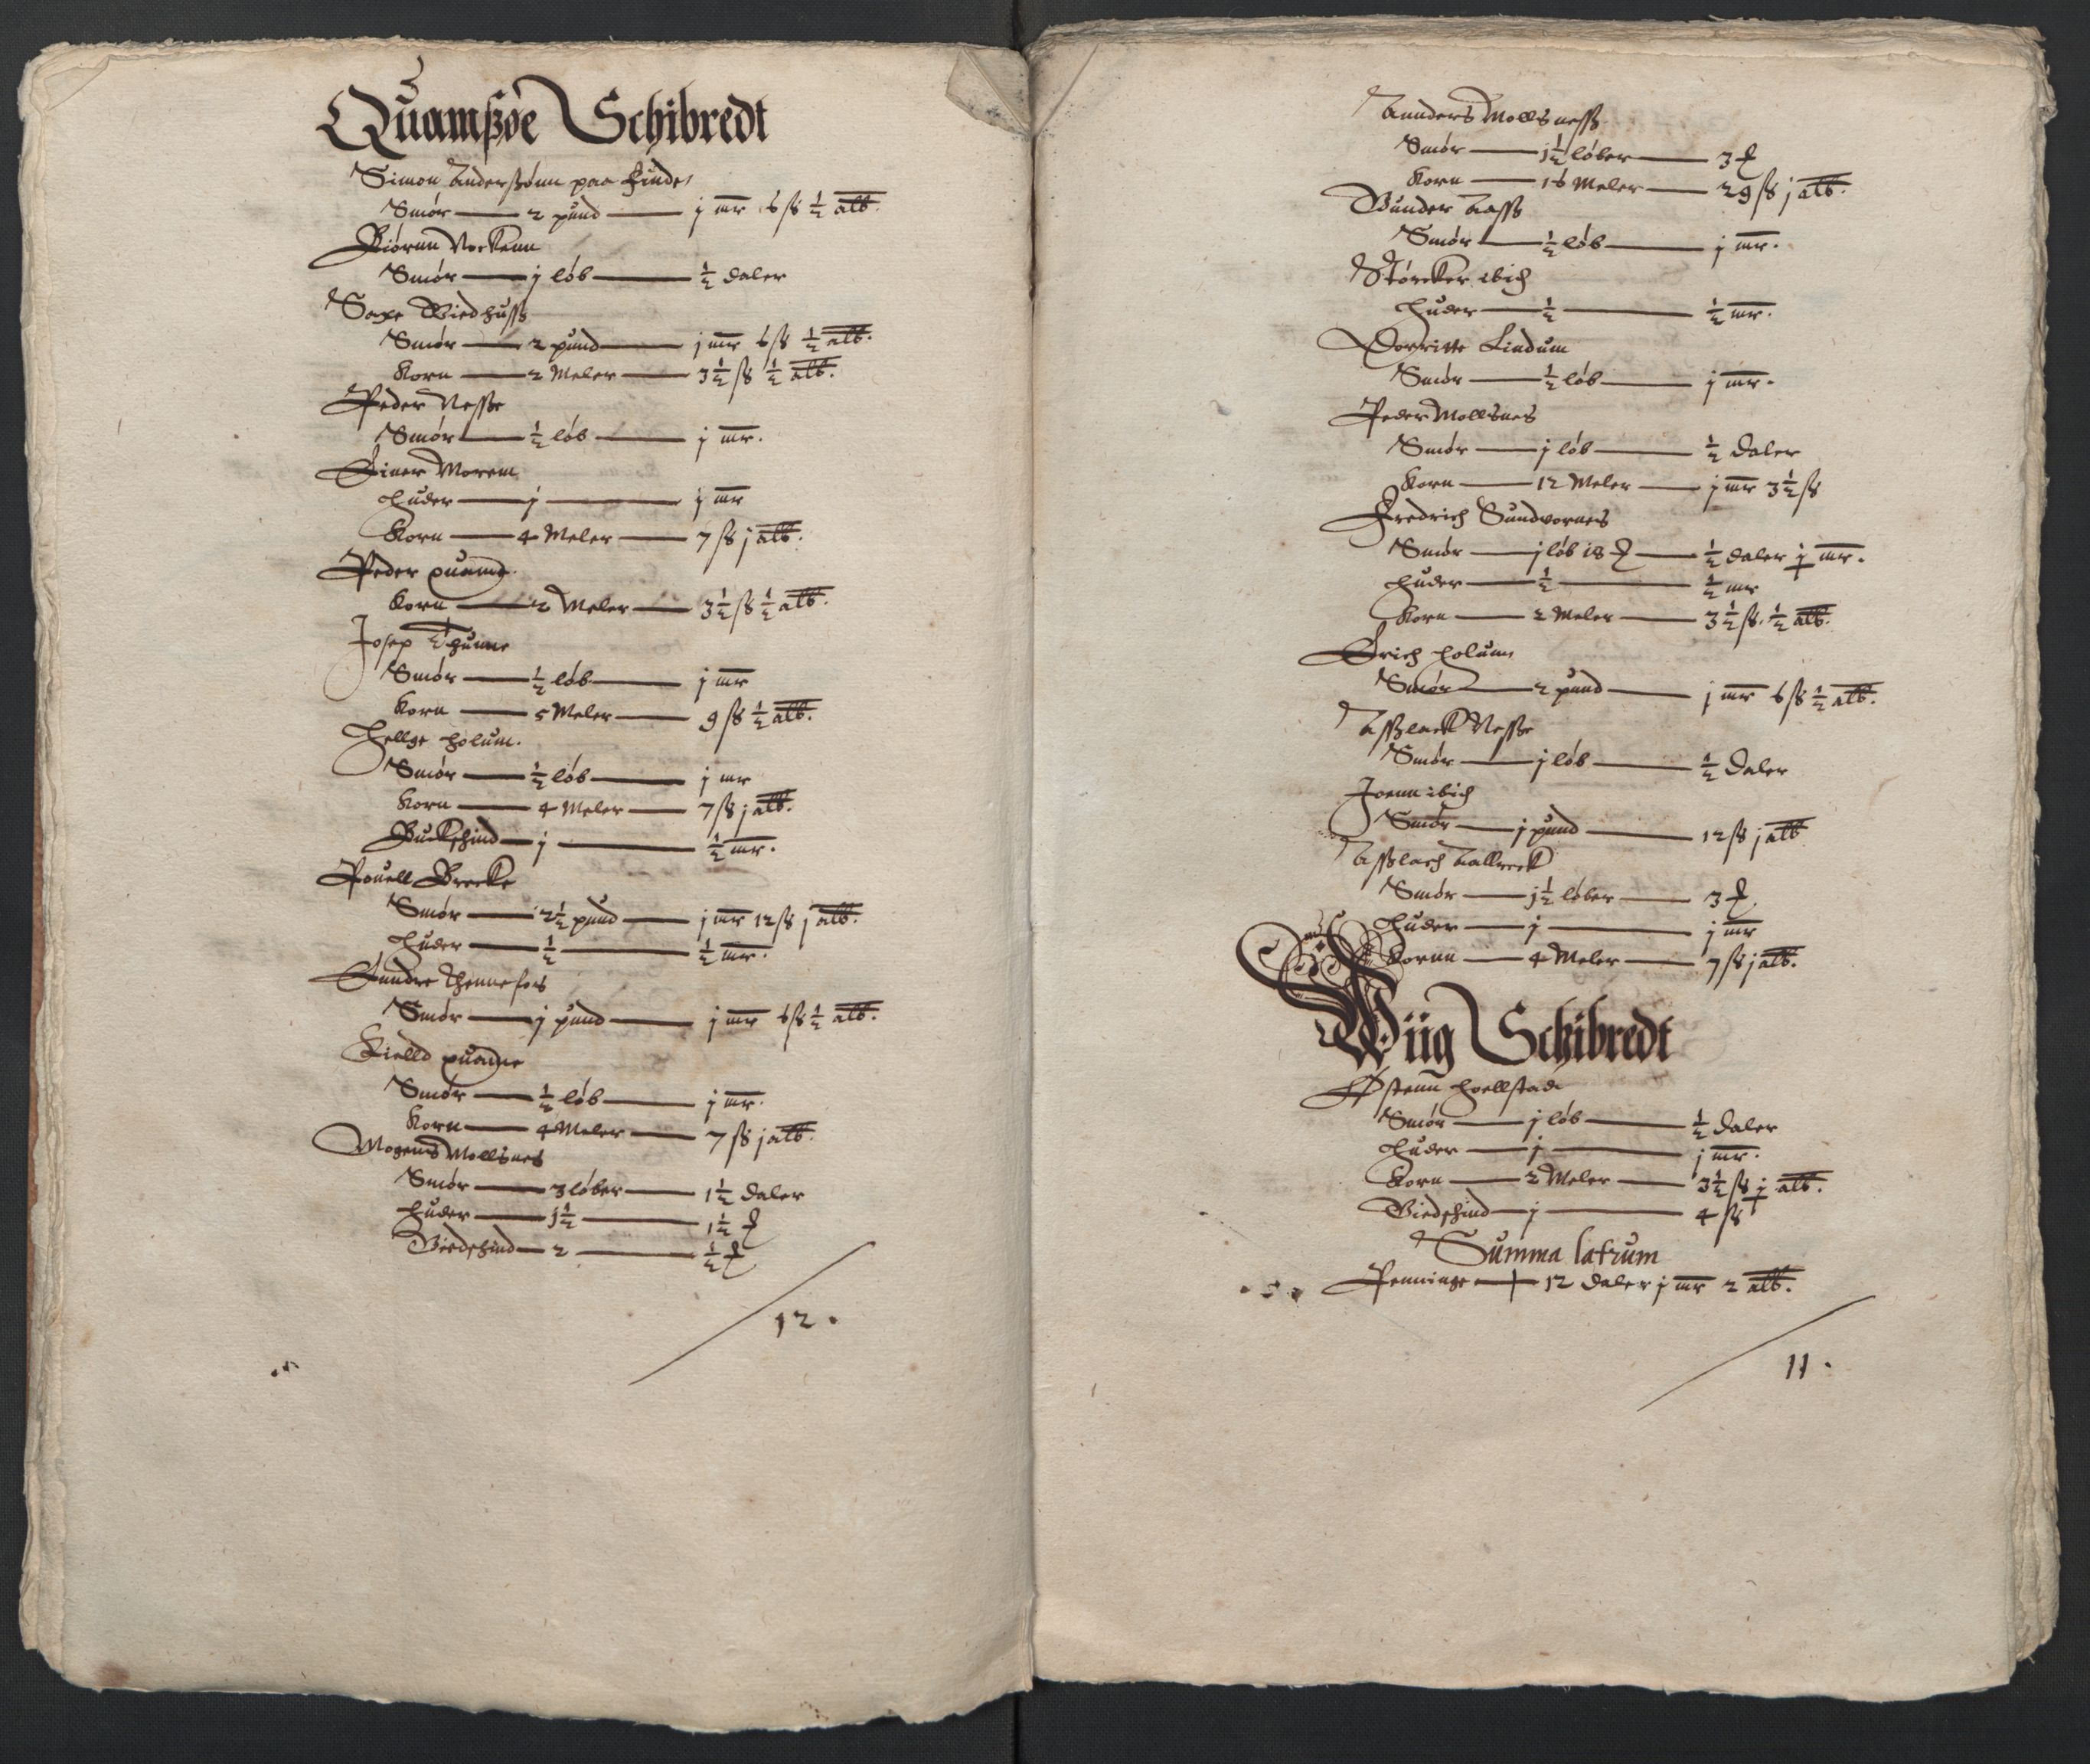 Quamsøe Schibredt
Simon Anderssønn paa Finden
Smör — 2 pund — j mr 6 ß ½ alb.
Biörnn Norkenn
Smör — j löb — ½ daler
Saxe Widhuss
Smör — 2 pund — j mr 6 ß ½ alb.
Korn — 2 Meler — 3½ ß ½ alb.
Peder Nesse
Smör — ½ löb — j mr.
Einer Morem
Huder — j — j mr
Korn — 4 Meler — 7 ß j alb.
Peder quame
Korn — 2 Meler — 3½ ß ½ alb.
Josep Thunne
Smör — ½ löb — j mr
Korn — 5 Meler — 9 ß ½ alb.
Hellge Holum.
Smör — ½ löb — j mr
Korn — 4 Meler — 7 ß j alb.
Buckschind — j — ½ mr.
Pouell Brecke
Smör — 2½ pund — j mr 12 ß j alb.
Huder — ½ — ½ mr.
Sundre Thennefos
Smör — j pund — j mr 6 ß ½ alb.
Kielld quame
Smör — ½ löb — j mr.
Korn — 4 Meler — 7 ß j alb.
Mogens Mollsnes
Smör — 3 löber — 1½ daler
Huder — j½ — 1½
Giedschind — 2 — ½
12.
Anders Mollsness
Smör — j½ löber — 3
Korn — 16 Meler — 29 ß j alb.
Gunder Aass
Smör — ½ löb — j mr.
Störcker ibich
Huder — ½ — ½ mr.
Dorritte Lindum
Smör — ½ löb — j mr.
Peder Mollsnes
Smör — j löb — ½ daler
Korn — 12 Meler — j mr 3½ ß
Fredrich Sundvornes
Smör — j löb 18 — ½ daler j mr.
Huder — ½ — ½ mr
Korn — 2 Meler — 3½ ß. ½ alb.
Erich Holum
Smör — 2 pund — j mr 6 ß ½ alb.
Asslack Nesse
Smör — j löb — ½ daler
Joenn ibich
Smör — j pund — 12 ß j alb
Asslach Aallreck
Smör — j½ löber — 3
Huder — j — j mr
Kornn — 4 Meler — 7 ß j alb.
Wiig Schibredt
Østenn Hoellstad
Smör — j löb — ½ daler
Huder — j — j mr.
Korn — 2 Meler — 3½ ß j alb.
Giedschind — j — 4 ß
Summa latrum
Penninge — 12 daler j mr 2 alb.
11.